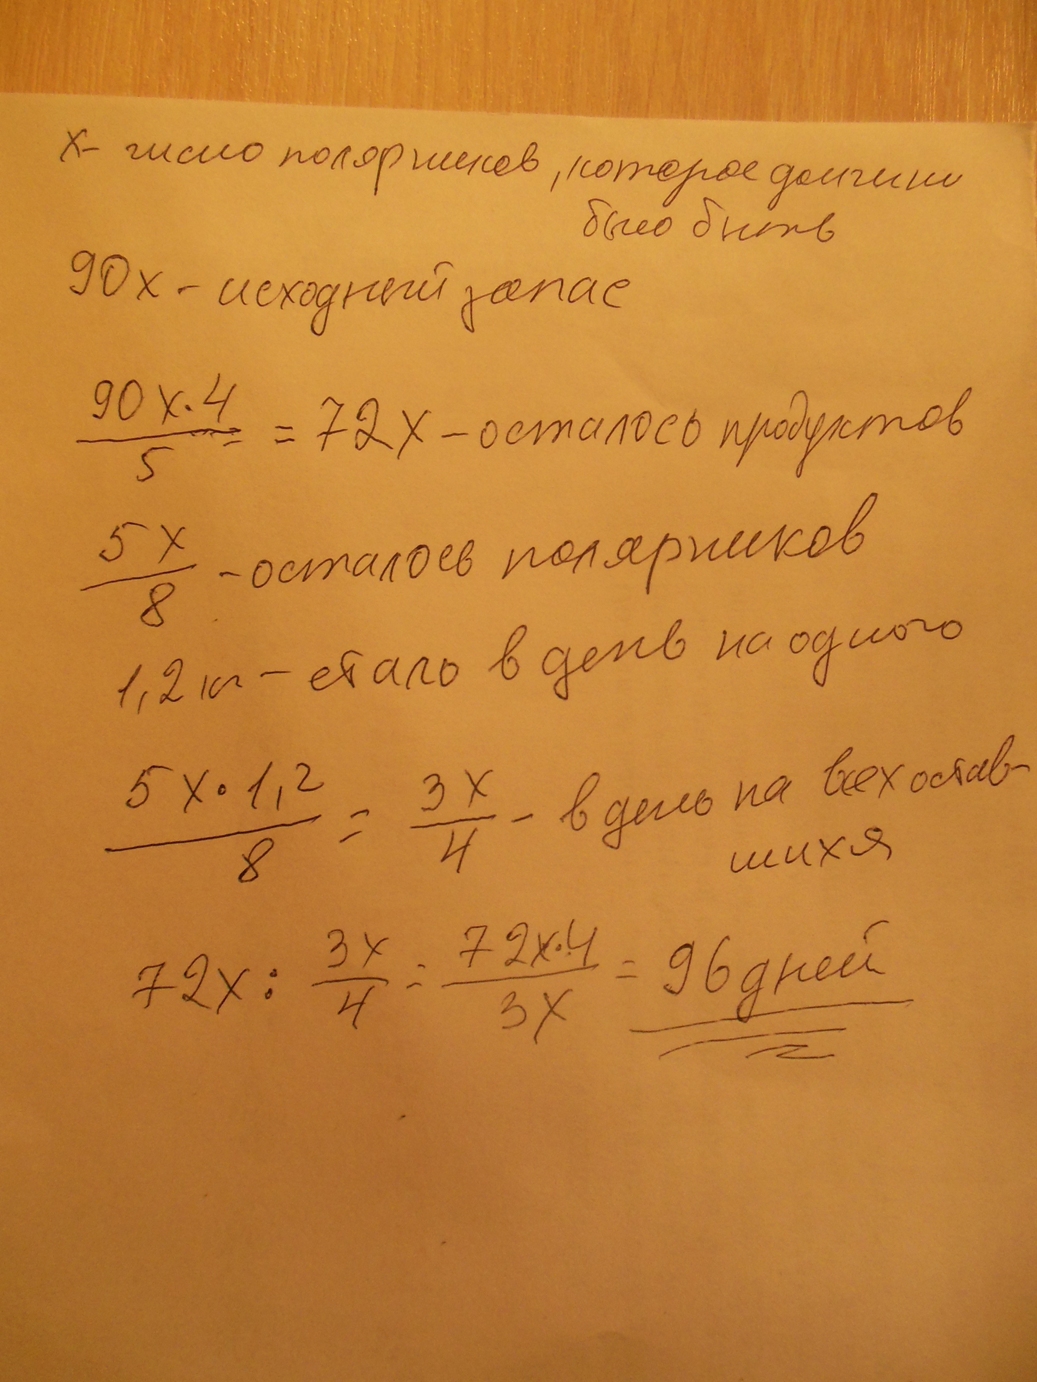 х- число полярников, которое должно
было быть
90х - исходный запас
90х·4/5 = 72х - осталось продуктов
5х/8 - осталось полярников
1,2 кг - стало в день на одного
5х·1,2/8 = 3х/4 - в день на всех остав-
шихся
72х : 3х/4 = 72х·4/3х = 96 дней